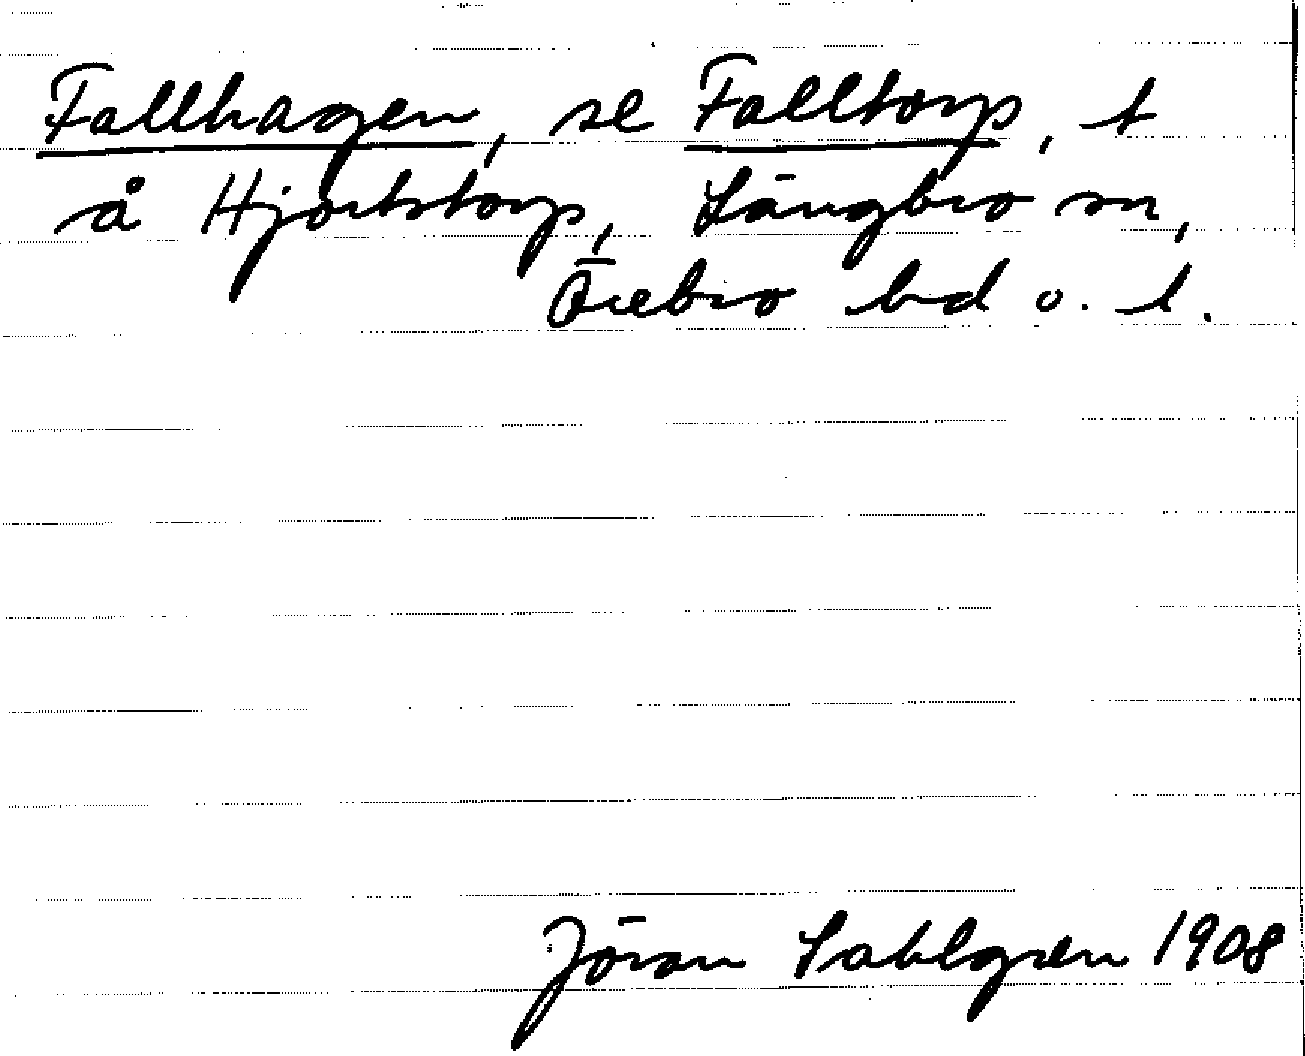 Fallhagen, se Falltorp, t
å Hjortstorp, Längbro sn,
Örebro hd o. l.
Jöran Sahlgren 1908